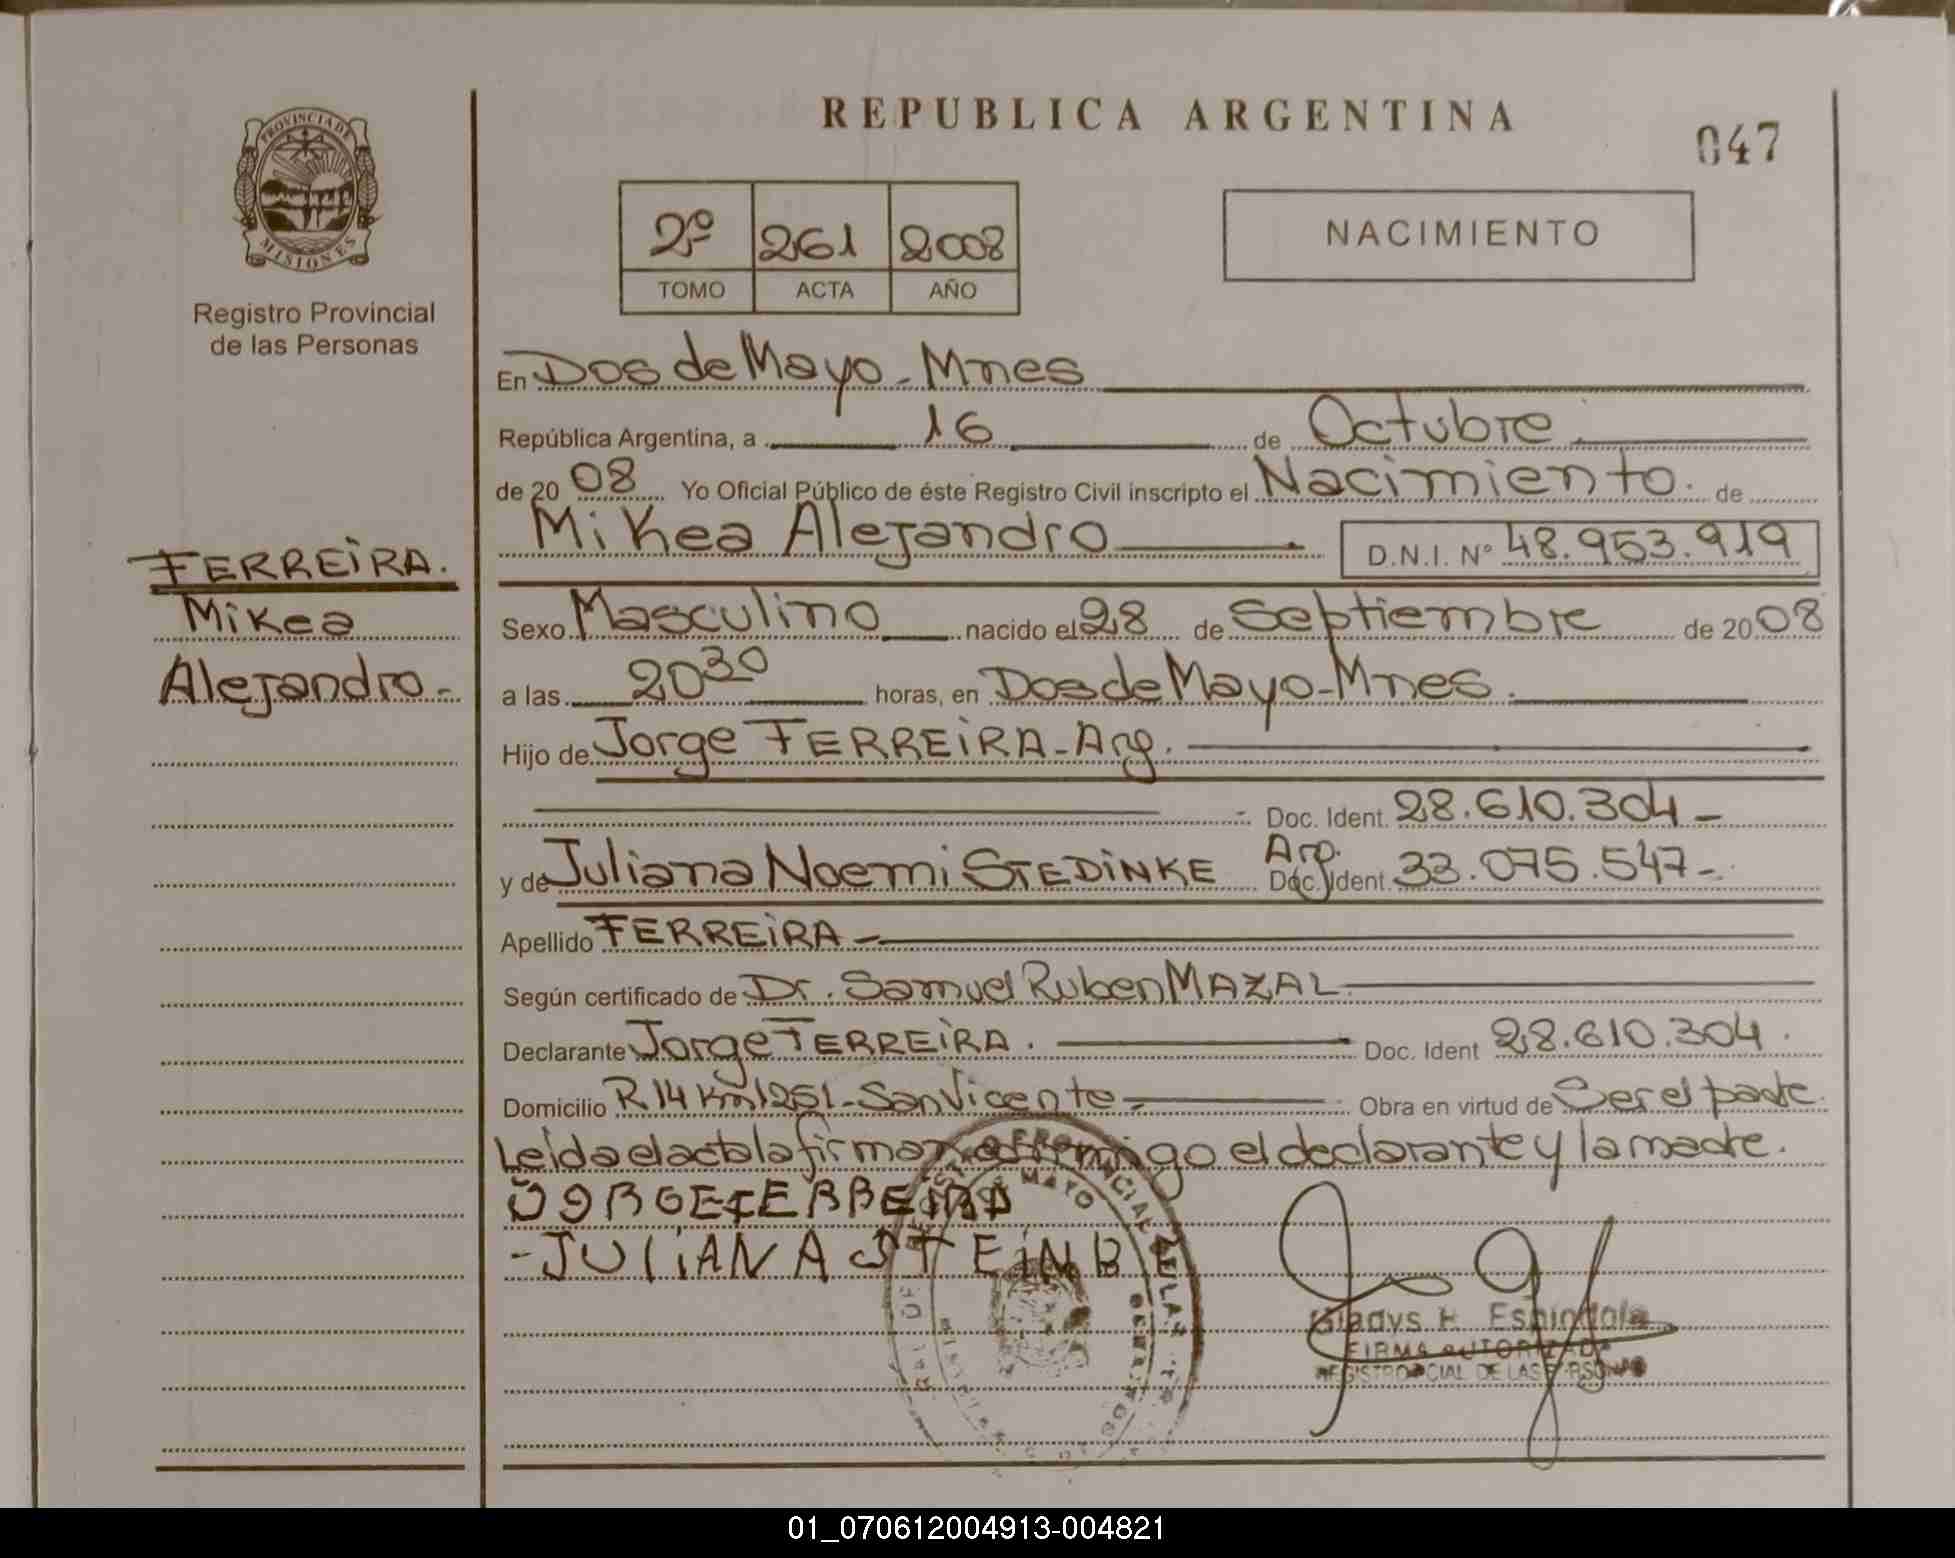 REPUBLICA ARGENTINA
047
PROVINCIA DE
MISIONES
Registro Provincial
de las Personas
2º 261 2008
TOMO ACTA AÑO
NACIMIENTO
En Dos de Mayo - Mnes
República Argentina, a 16 de Octubre
de 2008 Yo Oficial Público de éste Registro Civil inscripto el Nacimiento. de
Mikea Alejandro D.N.I. Nº 48.953.919
FERREIRA.
Mikea
Alejandro-
Sexo Masculino nacido el 28 de Septiembre de 2008
a las 20 30 horas, en Dos de Mayo-Mnes.
Hijo de Jorge FERREIRA-Arg.
Doc. Ident. 28.610.304-
y de Juliana Noemi STEDINKE Arg. Doc. Ident. 33.075.547-
Apellido FERREIRA-
Según certificado de Dr. Samuel Ruben MAZAL
Declarante Jorge FERREIRA. Doc. Ident 28.610.304.
Domicilio R.14 Km 1251-San Vicente- Obra en virtud de Ser el padre.
Leida el acta la firman conmigo el declarante y la madre.
JORGE FERREIRA
-JULIANA STEINB
Gladys H. Espindola
FIRMA AUTORIZADA
REGISTRO PCIAL DE LAS PERSONAS
01_070612004913-004821